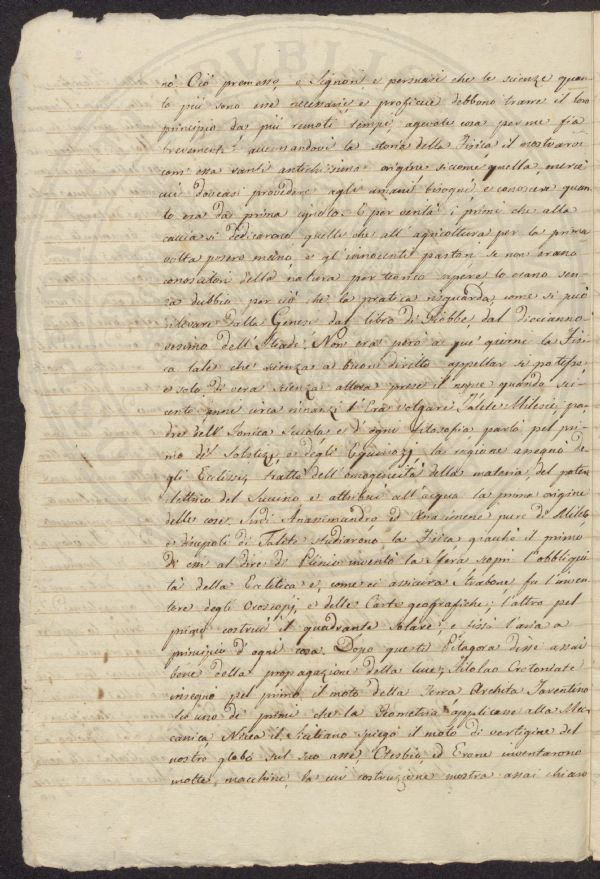 PUBLIC
no. Ciò premesso, o Signori e persuasi che le scienze quan-
to più sono esse necessarie e proficue debbono trarre il loro
principio da più remoti tempi, agevole cosa per me fia
brevemente accennandovi la storia della Fisica il mostrarvi
com'essa vanti antichissima origine siccome quella, mercè
cui doveasi provedere agli umani bisogni, e conoscere quan-
to era da prima ignoto. E per verità i primi che alla
caccia si dedicarono quelli che all'agricoltura per la prima
volta posero mano, e gl'innocenti pastori se non erano
conoscitori della natura per teorico sapere lo erano sen-
za dubbio per ciò che la pratica risguarda, come si può
rilevare dalla Genesi dal libro di Giobbe, dal diocianno-
vesimo dell'Iliade. Non era però a que' giorni la Fisi-
ca tale che scienza a buon diritto appellar si potesse,
e solo di vera scienza allora prese il nome quando sei-
cento anni circa innanzi l'Era volgare Talete Milesio, pa-
dre dell'Jonica Scuola e d'ogni filosofia parlò pel pri-
mo di Solstizj, e degli Equinozj la ragione assegnò de-
gli Eclissi, trattò dell'omogeneità della materia, del poter
elettrico del Succino e attribuì all'acqua la prima origine
delle cose. Indi Anassimandro ed Anassimene pure di Mileto,
e discepoli di Talete studiarono la Fisica giacchè il primo
di essi al dire di Plinio inventò la Sfera scoprì l'obbliqui-
tà della Eclittica e, come ci assicura Strabone fu l'inven-
tore degli Oroscopj, e delle Carte geografiche; l'altro pel
primo costruì il quadrante Solare, e fissò l'aria a
principio d'ogni cosa. Dopo questi Pitagora disse assai
bene della propagazione della luce; Filolao Crotoniate
insegnò pel primo il moto della Terra Archita Tarentino
fu uno de' primi che la Geometria applicasse alla Mec-
canica Niceta il Siciliano spiegò il moto di vertigine del
nostro globo sul suo asse, Ctesbio, ed Erone inventarono
molte macchine, la cui costruzione mostra assai chiaro